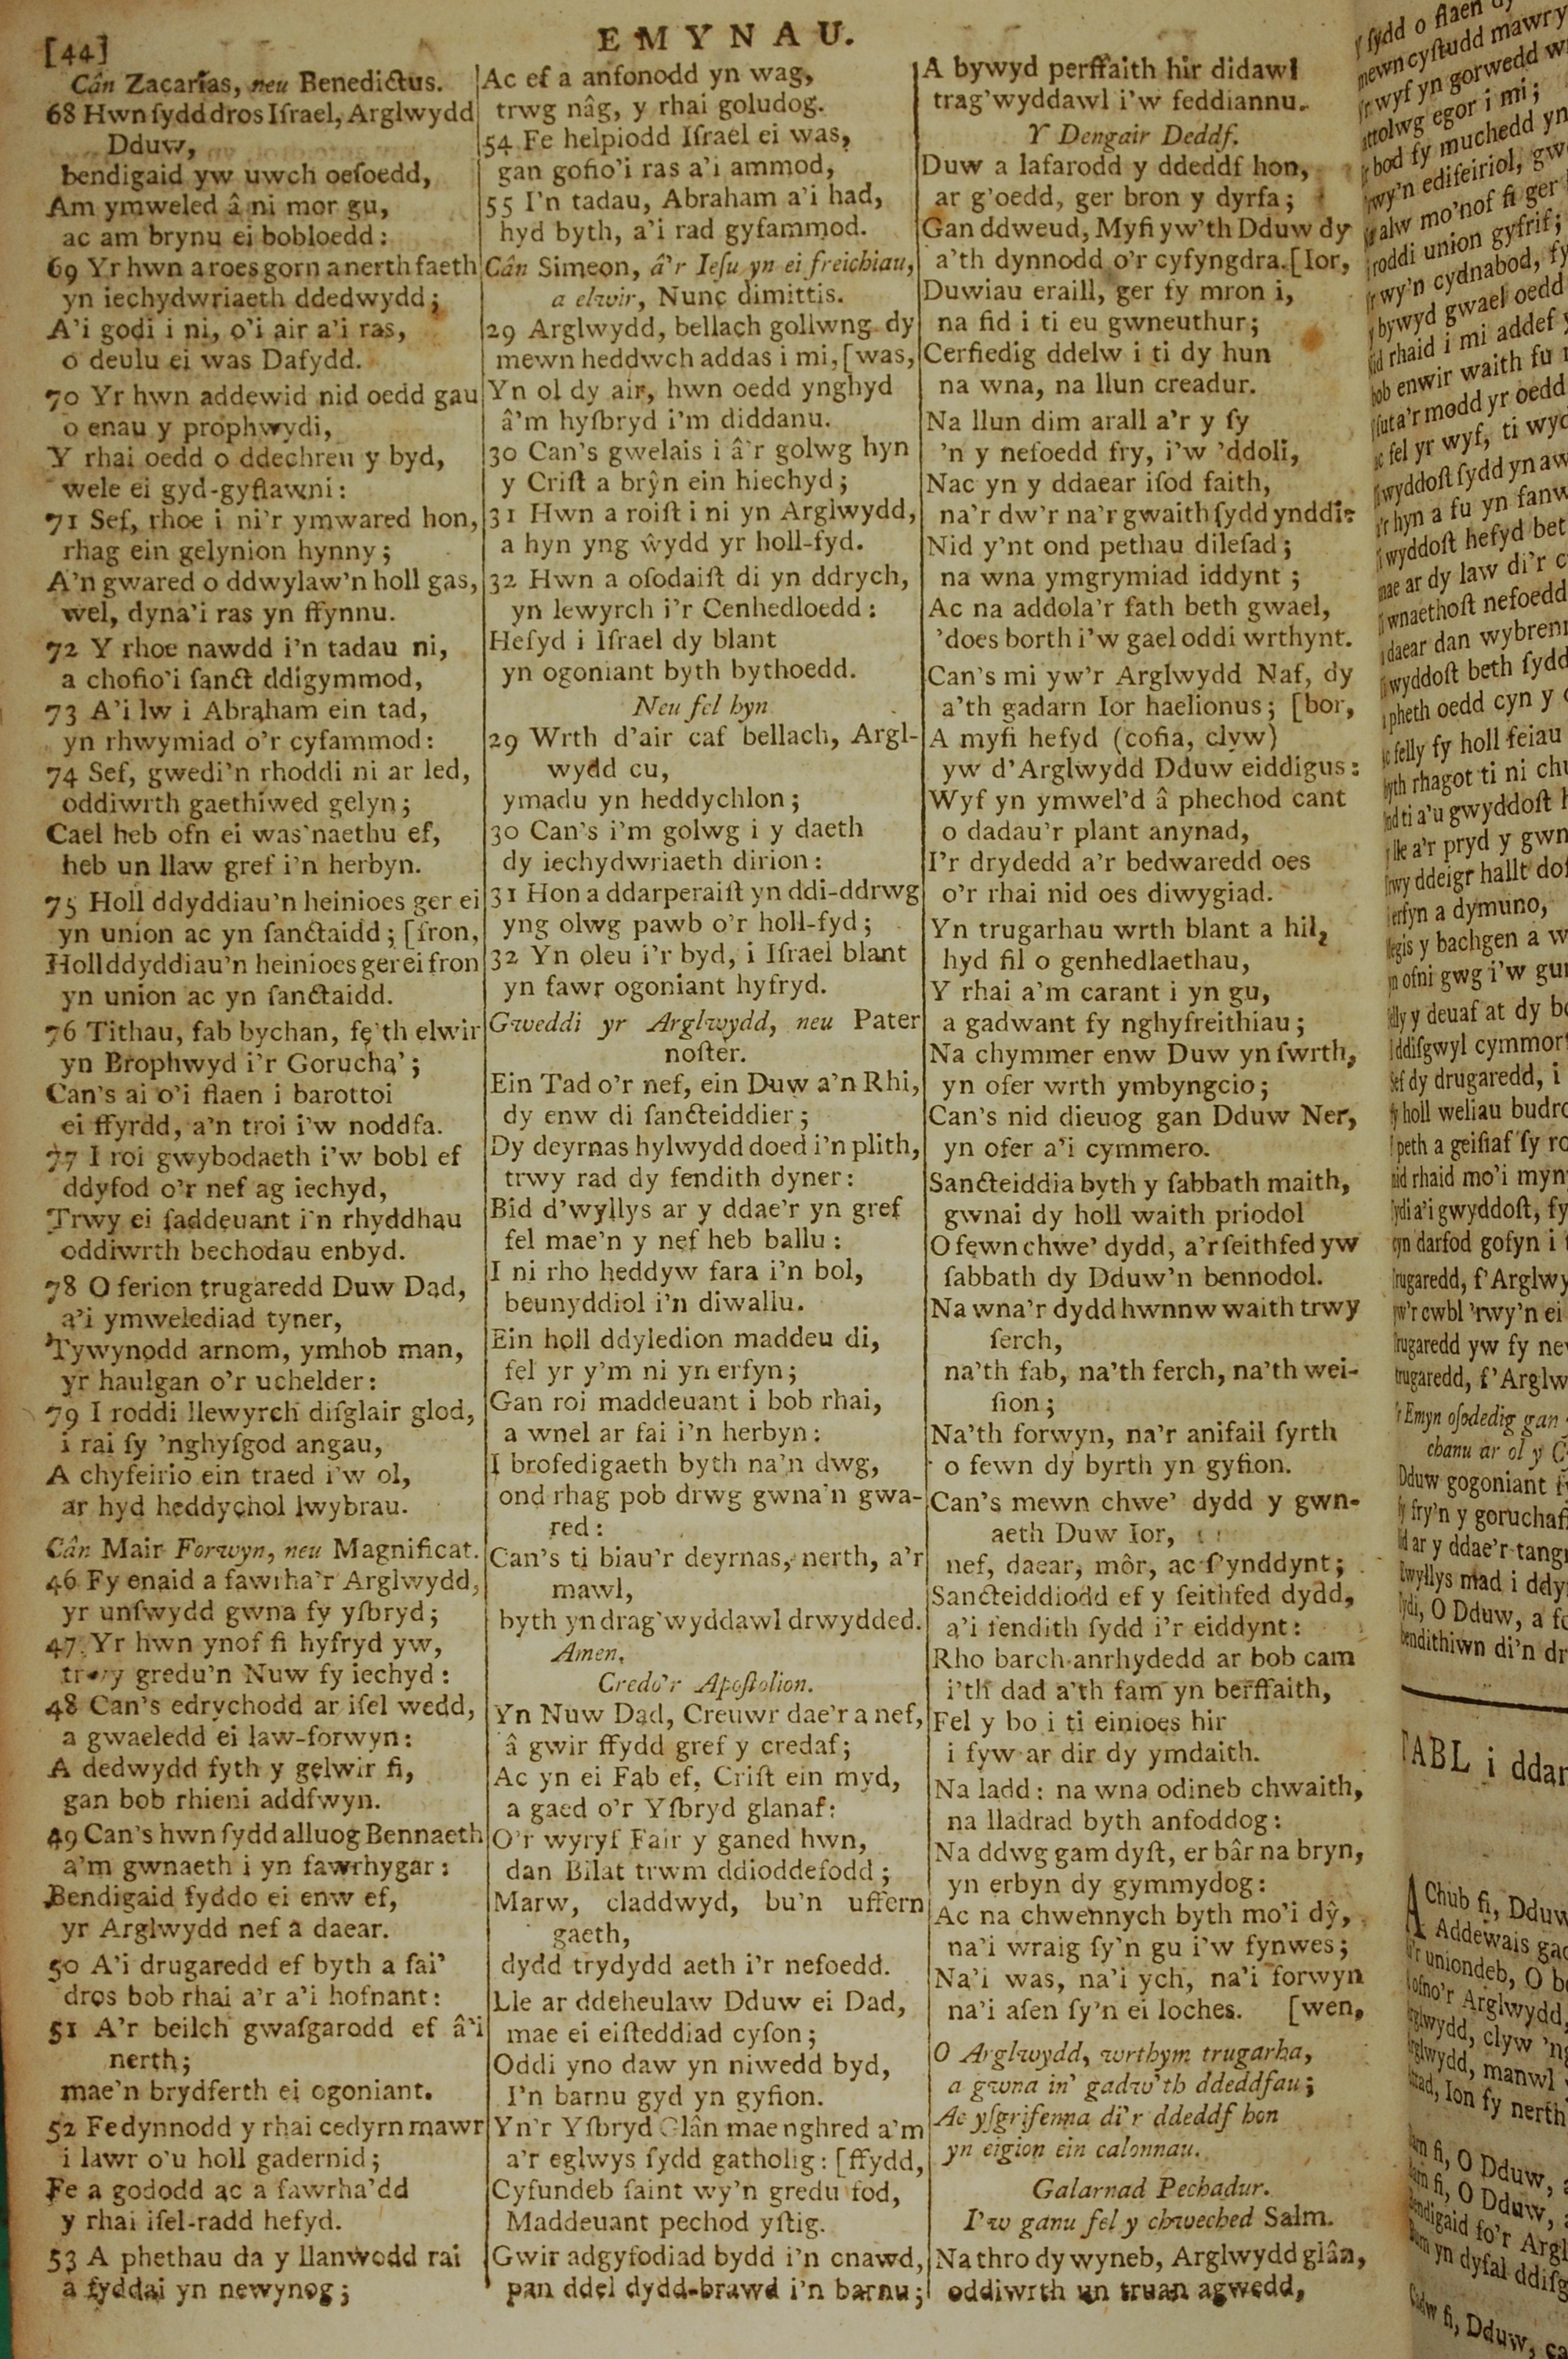 [44]
EMYNAU.
Cân Zacarias, neu Benedictus.
68 Hwn ſydd dros Iſrael, Arglwydd
Dduw,
bendigaid yw uwch oeſoedd,
Am ymweled â ni mor gu,
ac am brynu ei bobloedd:
69 Yr hwn a roes gorn a nerth faeth
yn iechydwriaeth ddedwydd;
A'i godi i ni, o'i air a'i ras,
o deulu ei was Dafydd.
70 Yr hwn addewid nid oedd gau
o enau y prophwydi,
Y rhai oedd o ddechreu y byd,
wele ei gyd-gyflawni:
71 Sef, rhoe i ni'r ymwared hon,
rhag ein gelynion hynny;
A'n gwared o ddwylaw'n holl gas,
wel, dyna'i ras yn ffynnu.
72 Y rhoe nawdd i'n tadau ni,
a chofio'i ſanct ddigymmod,
73 A'i lw i Abraham ein tad,
yn rhwymiad o'r cyfammod:
74 Sef, gwedi'n rhoddi ni ar led,
oddiwrth gaethiwed gelyn;
Cael heb ofn ei waſ'naethu ef,
heb un llaw gref i'n herbyn.
75 Holl ddyddiau'n heinioes ger ei
yn union ac yn ſanctaidd; [fron,
Holl ddyddiau'n heinioes ger ei fron
yn union ac yn ſanctaidd.
76 Tithau, fab bychan, fe'th elwir
yn Brophwyd i'r Gorucha';
Can's ai o'i flaen i barottoi
ei ffyrdd, a'n troi i'w noddfa.
77 I roi gwybodaeth i'w bobl ef
ddyfod o'r nef ag iechyd,
Trwy ei faddeuant i'n rhyddhau
oddiwrth bechodau enbyd.
78 O ferion trugaredd Duw Dad,
a'i ymwelediad tyner,
Tywynodd arnom, ymhob man,
yr haulgan o'r uchelder:
79 I roddi llewyrch diſglair glod,
i rai ſy 'nghyſgod angau,
A chyfeirio ein traed i'w ol,
ar hyd heddychol lwybrau.
Cân Mair Forwyn, neu Magnificat.
46 Fy enaid a fawrha'r Arglwydd,
yr unſwydd gwna fy yſbryd;
47 Yr hwn ynof fi hyfryd yw,
trwy gredu'n Nuw fy iechyd:
48 Can's edrychodd ar iſel wedd,
a gwaeledd ei law-forwyn:
A dedwydd fyth y gelwir fi,
gan bob rhieni addfwyn.
49 Can's hwn ſydd alluog Bennaeth
a'm gwnaeth i yn fawrhygar:
Bendigaid fyddo ei enw ef,
yr Arglwydd nef a daear.
50 A'i drugaredd ef byth a fai'
dros bob rhai a'r a'i hofnant:
51 A'r beilch gwaſgarodd ef â'i
nerth;
mae'n brydferth ei ogoniant.
52 Fe dynnodd y rhai cedyrn mawr
i lawr o'u holl gadernid;
Fe a gododd ac a fawrha'dd
y rhai iſel-radd hefyd.
53 A phethau da y llanwodd rai
a fyddai yn newynog;
Ac ef a anfonodd yn wag,
trwg nâg, y rhai goludog.
54 Fe helpiodd Iſrael ei was,
gan gofio'i ras a'i ammod,
55 I'n tadau, Abraham a'i had,
hyd byth, a'i rad gyfammod.
Cân Simeon, â'r Ieſu yn ei freichiau,
a elwir, Nunc dimittis.
29 Arglwydd, bellach gollwng dy
mewn heddwch addas i mi, [was,
Yn ol dy air, hwn oedd ynghyd
â'm hyſbryd i'm diddanu.
30 Can's gwelais i â'r golwg hyn
y Criſt a brŷn ein hiechyd;
31 Hwn a roiſt i ni yn Arglwydd,
a hyn yng ŵydd yr holl-fyd.
32 Hwn a oſodaiſt di yn ddrych,
yn lewyrch i'r Cenhedloedd:
Hefyd i Iſrael dy blant
yn ogoniant byth bythoedd.
Neu fel hyn
29 Wrth d'air caf bellach, Argl-
wydd cu,
ymadu yn heddychlon;
30 Can's i'm golwg i y daeth
dy iechydwriaeth dirion:
31 Hon a ddarperaiſt yn ddi-ddrwg
yng olwg pawb o'r holl-fyd;
32 Yn oleu i'r byd, i Iſrael blant
yn fawr ogoniant hyfryd.
Gweddi yr Arglwydd, neu Pater
noſter.
Ein Tad o'r nef, ein Duw a'n Rhi,
dy enw di ſancteiddier;
Dy deyrnas hylwydd doed i'n plith,
trwy rad dy fendith dyner:
Bid d'wyllys ar y ddae'r yn gref
fel mae'n y nef heb ballu:
I ni rho heddyw fara i'n bol,
beunyddiol i'n diwallu.
Ein holl ddyledion maddeu di,
fel yr y'm ni yn erfyn;
Gan roi maddeuant i bob rhai,
a wnel ar fai i'n herbyn:
I brofedigaeth byth na'n dwg,
ond rhag pob drwg gwna'n gwa-
red:
Can's ti biau'r deyrnas, nerth, a'r
mawl,
byth yn drag'wyddawl drwydded.
Amen.
Credo'r Apoſtolion.
Yn Nuw Dad, Creuwr dae'r a nef,
â gwir ffydd gref y credaf;
Ac yn ei Fab ef, Criſt ein myd,
a gaed o'r Yſbryd glanaf:
O'r wyryf Fair y ganed hwn,
dan Bilat trwm ddioddefodd;
Marw, claddwyd, bu'n uffern
gaeth,
dydd trydydd aeth i'r nefoedd.
Lle ar ddeheulaw Dduw ei Dad,
mae ei eiſteddiad cyſon;
Oddi yno daw yn niwedd byd,
I'n barnu gyd yn gyfion.
Yn'r Yſbryd Glân mae nghred a'm
a'r eglwys ſydd gatholig: [ffydd,
Cyfundeb ſaint wy'n gredu fod,
Maddeuant pechod yſtig.
Gwir adgyfodiad bydd i'n cnawd,
pan ddel dydd-brawd i'n barnu;
A bywyd perffaith hir didawl
trag'wyddawl i'w feddiannu.
Y Dengair Deddf.
Duw a lafarodd y ddeddf hon,
ar g'oedd, ger bron y dyrfa;
Gan ddweud, Myfi yw'th Dduw dy
a'th dynnodd o'r cyfyngdra. [Ior,
Duwiau eraill, ger fy mron i,
na fid i ti eu gwneuthur;
Cerfiedig ddelw i ti dy hun
na wna, na llun creadur.
Na llun dim arall a'r y ſy
'n y nefoedd fry, i'w 'ddoli,
Nac yn y ddaear iſod faith,
na'r dw'r na'r gwaith ſydd ynddi:
Nid y'nt ond pethau dileſad;
na wna ymgrymiad iddynt;
Ac na addola'r fath beth gwael,
'does borth i'w gael oddi wrthynt.
Can's mi yw'r Arglwydd Naf, dy
a'th gadarn Ior haelionus; [bor,
A myfi hefyd (cofia, clyw)
yw d'Arglwydd Dduw eiddigus:
Wyf yn ymwel'd â phechod cant
o dadau'r plant anynad,
I'r drydedd a'r bedwaredd oes
o'r rhai nid oes diwygiad.
Yn trugarhau wrth blant a hil,
hyd fil o genhedlaethau,
Y rhai a'm carant i yn gu,
a gadwant fy nghyfreithiau;
Na chymmer enw Duw yn ſwrth,
yn ofer wrth ymbyngcio;
Can's nid dieuog gan Dduw Ner,
yn ofer a'i cymmero.
Sancteiddia byth y ſabbath maith,
gwnai dy holl waith priodol
O fewn chwe' dydd, a'r ſeithfed yw
ſabbath dy Dduw'n bennodol.
Na wna'r dydd hwnnw waith trwy
ſerch,
na'th fab, na'th ferch, na'th wei-
ſion;
Na'th forwyn, na'r anifail ſyrth
o fewn dy byrth yn gyfion.
Can's mewn chwe' dydd y gwn-
aeth Duw Ior,
nef, daear, môr, ac ſ'ynddynt;
Sancteiddiodd ef y ſeithfed dydd,
a'i fendith ſydd i'r eiddynt:
Rho barch anrhydedd ar bob cam
i'th dad a'th fam yn berffaith,
Fel y bo i ti einioes hir
i fyw ar dir dy ymdaith.
Na ladd: na wna odineb chwaith,
na lladrad byth anfoddog:
Na ddwg gam dyſt, er bâr na bryn,
yn erbyn dy gymmydog:
Ac na chwennych byth mo'i dŷ,
na'i wraig ſy'n gu i'w fynwes;
Na'i was, na'i ych, na'i forwyn
na'i aſen ſy'n ei loches. [wen,
O Arglwydd, wrthym trugarha,
a gwna in' gadw'th ddeddfau;
Ac yſgrifenna di'r ddeddf hon
yn eigion ein calonnau.
Galarnad Pechadur.
I'w ganu fel y chweched Salm.
Na thro dy wyneb, Arglwydd glân,
oddiwrth un truan agwedd,
ſydd o flaen
mewn cyſtudd mawr
wyf yn gorwedd
attolwg egor i mi;
bod fy muchedd yn
'rwy'n edifeiriol,
alw mo'nof fi ger
roddi union gyfrif;
'rwy'n cydnabod, fy
bywyd gwael oedd
rhaid i mi addef
bob enwir waith fu
a'r modd yr oedd
fel yr wyf, ti
wyddoſt ſydd yn
hyn a fu yn
wyddoſt hefyd
mae ar dy law di'r
wnaethoſt nefoedd
daear dan
wyddoſt beth ſydd
pheth oedd cyn y
felly fy holl feiau
rhagot ti ni
ti a'u gwyddoſt
lle a'r pryd y
ddeigr hallt
erfyn a dymuno,
y bachgen a
ofni gwg i'w
y deuaf at dy
ddiſgwyl
Sef dy drugaredd, i
holl weliau
peth a geiſiaf fy
nid rhaid mo'i
a'i gwyddoſt, fy
cyn darfod gofyn i
Trugaredd, f'Arglwy
cwbl 'rwy'n ei
Trugaredd yw fy
trugaredd, f'Arglw
Emyn oſodedig gan
chanu ar ol y
Dduw gogoniant
fry'n y
ar y ddae'r
wyllys mad i
O Dduw, a
bendithiwn di'n
TABL i
AChub fi, Dduw
Addewais
uniondeb, O
Arglwydd,
clyw
manwl
Ion fy nerth
fi, O Dduw,
fi, O Dduw,
Bendigaid fo'r Argl
yn dyfal
fi, Dduw,